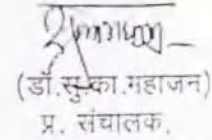 (डॉ.सु.का.महाजन)
प्र. संचालक.